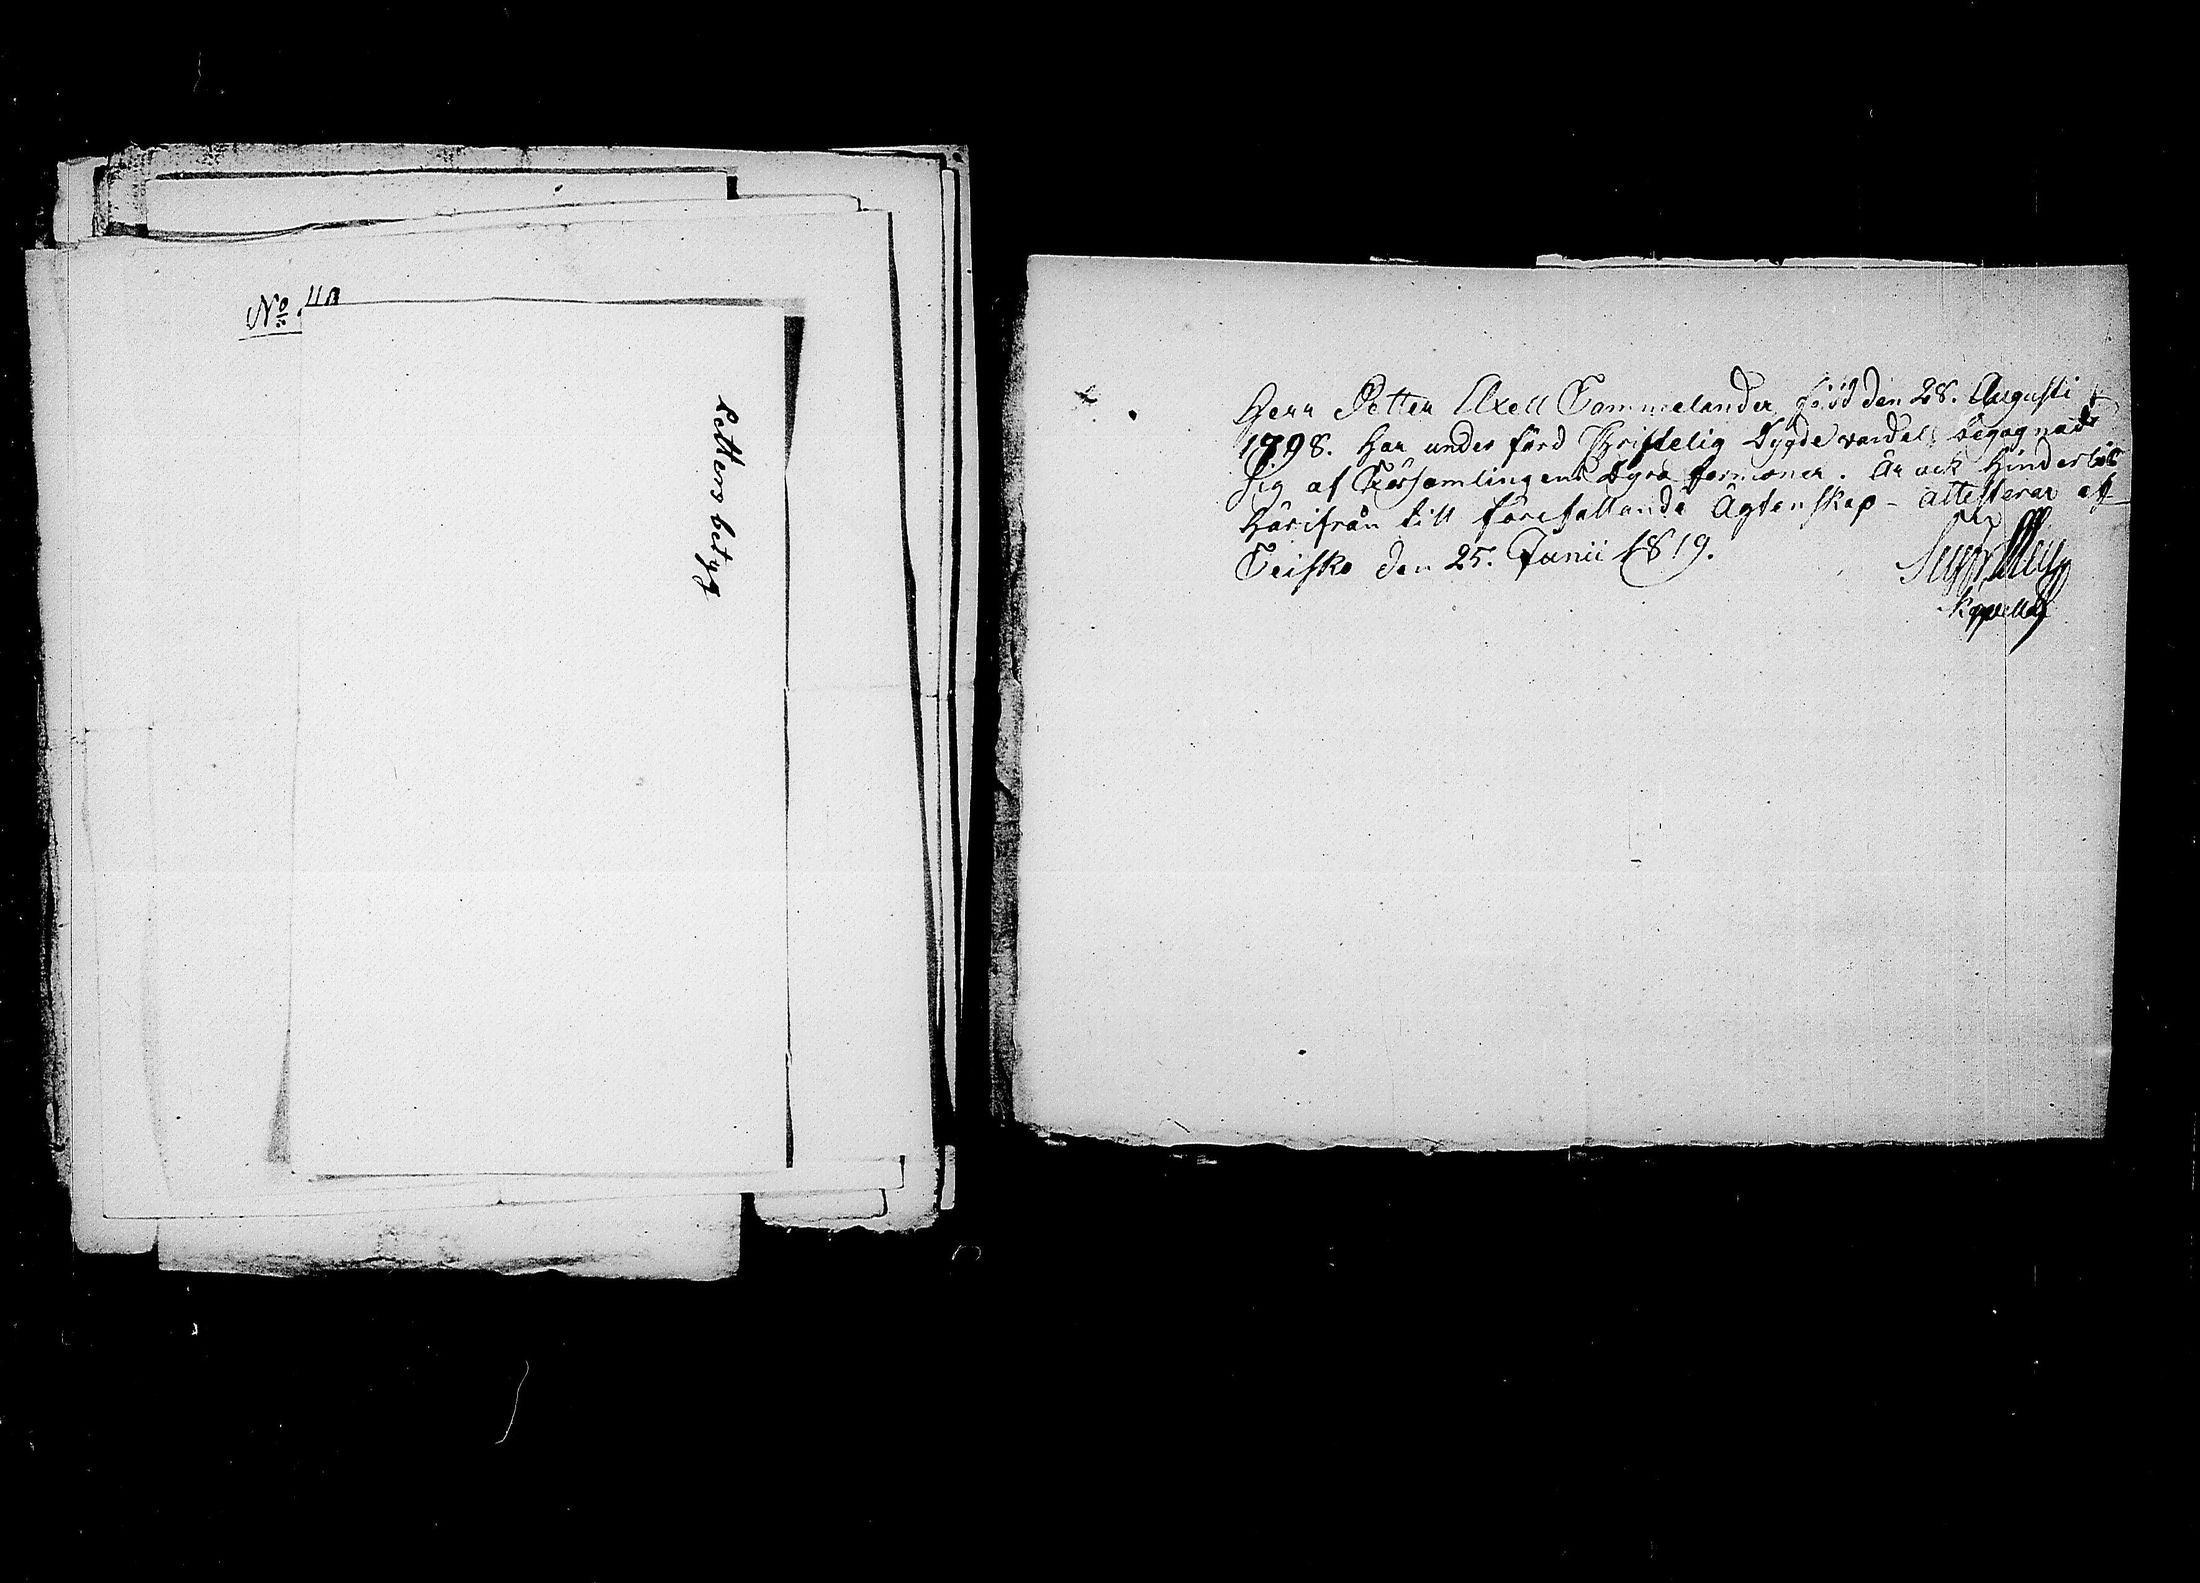 No:
Petters betyg
Herr Petter Axell Sommelander, född den 28. Augusti
1798. Har under förd Christelig Dygdevandel, begagnadt
sig af Församlingens Dyra förmoner. Är ock Hinderlös
Härifrån till förefallande Ägtenskap - attesterar af
Teisko den 25. Junii 1819.
Kappellan